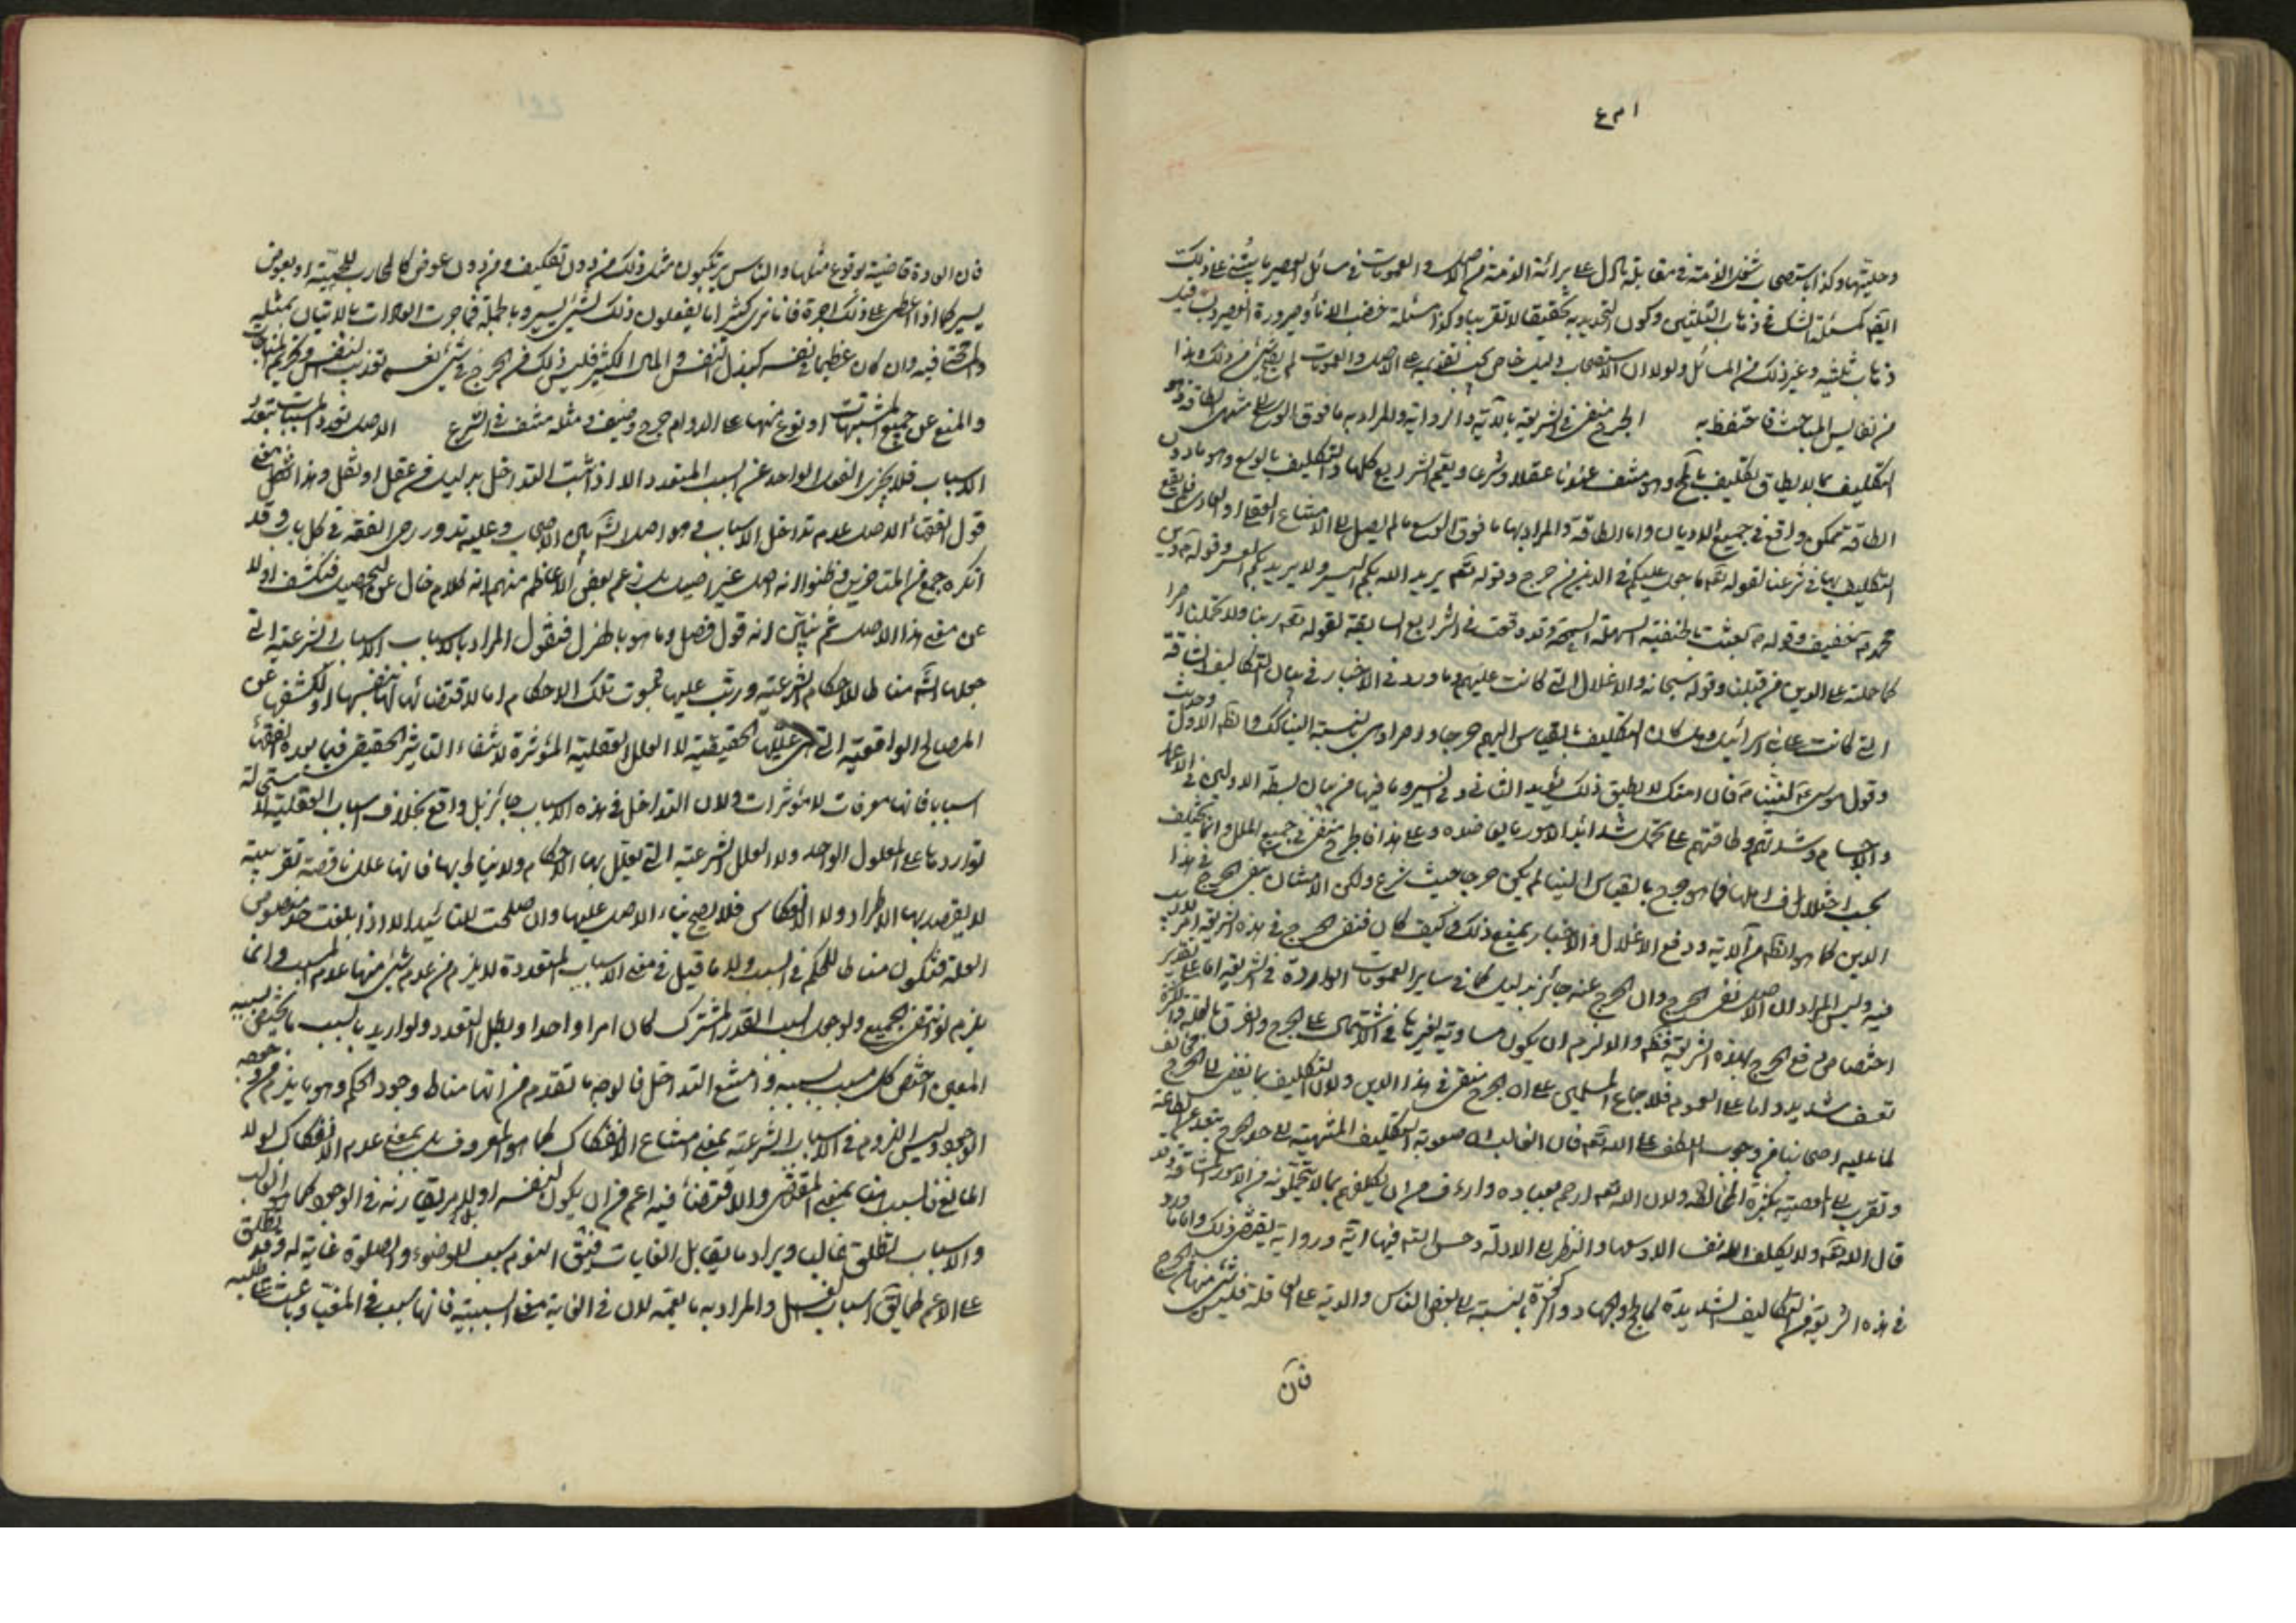 وحليتها وكذا استصحاب شغل الذمة في مقابلة ما دل على برائة الذمة من الاصل والعمومات في مسائل العصير ما يبتنى على ذلك
ذهاب ثلثيه وغير ذلك من المسائل ولولا ان الاستصحاب دليل خاص يجب تقديمه على الاصل والعمومات لم يصح شئ من ذلك وهذا
من نفايس المباحث فاحتفظ به الحرج منفى في الشريعة بالآية والرواية والمراد به ما فوق الوسع
التكليف بما لا يطاق تكليف بالمحال وهو منتف عندنا عقلا وشرعا ويعم الشرايع كلها والتكليف بالوسع وهو ما دون
الطاقة ممكن واقع في جميع الاديان واما الطاقة والمراد بها ما فوق الوسع ما لم يصل الى الامتناع العقلى او العادى فلم يقع
التكليف بها في شرعنا لقوله تعم ما جعل عليكم في الدين من حرج وقوله تعم يريد الله بكم اليسر ولا يريد بكم العسر وقوله ص دين
محمد ص خفيف وقوله ص بعثت بالحنفية السهلة السمحة وقد وقعت في الشرايع السابقة لقوله تعم ربنا ولا تحمل علينا اصرا
كما حملته على الذين من قبلنا وقوله سبحانه والاغلال التي كانت عليهم وما ورد في الاخبار في بيان التكاليف الشاقة
التي كانت على بنى اسرائيل وهل كان التكليف بالقياس اليهم حرجا واصرا وهى بالنسبة الينا كك والظ الاول وحديث
وقول موسى ع لنبينا ص فان امتك لا يطيق ذلك يؤيد الثانى وفي السير وما فيها من بيان بسطة الاولين في الاعمار
والاجسام وشدتهم وطاقتهم على تحمل شدائد الامور ما يق ضده وعلى هذا فالحرج منفى في جميع الملل وانما يختلف
بحسب اختلاف اهلها فما هو حرج بالقياس الينا لم يكن حرجا حيث شرع ولكن الامتنان بنفى الحرج في هذا
الدين كما هو الظ من الآية ورفع الاغلال في الاخبار يمنع ذلك وكيف كان فنفى الحرج في هذه الشريعة امر لا ريب
فيه وليس المراد ان الاصل نفى الحرج وان الحرج عنه جائز بدليل كما في ساير العمومات الواردة في الشريعة اما على تقدير
اختصاص رفع الحرج بهذه الشريعة فظ والا لزم ان يكون مساوية لغيرها في الاشتمال على الحرج والفرق بالقلة والكثرة
تعسف شديد واما على العموم فلاجماع المسلمين على ان الحرج منفى في هذا الدين ولان التكليف بما يفضى الى الحرج مخالف
لما عليه اصحابنا من وجوب اللطف على الله تعم فان الغالب ان صعوبة التكليف المنتهية الى حد الحرج تبعد عن الطاعة
وتقرب الى المعصية بكثرة المخالفة ولان الله تعم ارحم بعباده وارءف من ان يكلفهم بما لا يتحملونه من الامور الشاقة وقد
قال الله تعم ولا يكلف الله نفسا الا وسعها والنظر الى الادلة وحسن التم فيها آية ورواية يقتضى ذلك واما ما ورد
في هذه الشريعة من التكاليف الشديدة كالحج والجهاد والزكوة بالنسبة الى بعض الناس والدية على العاقلة فليس شئ منها من الحرج
فان
فان العادة قاضية بوقوع مثلها والناس يرتكبون مثل ذلك من دون تكليف ومن دون عوض كالمحارب للحمية او بعوض
يسير كما اذا اعطى على ذلك اجرة فانا نرى كثيرا ما يفعلون ذلك لشئ يسير وبالجملة فما جرت العادات بالاتيان بمثله
والمسامحة فيه وان كان عظيما في نفسه كبذل النفس والمال الكثير فليس ذلك من الحرج في شئ نعم تعذيب النفس وتحريم المباحات
والمنع عن جميع المشتهيات او نوع منها على الدوام حرج وضيق ومثله منتف في الشرع الاصل تعدد المسببات بتعدد
الاسباب فلا يجزى الفعل الواحد عن السبب المتعدد الا اذا ثبت التداخل بدليل من عقل او نقل وهذا معنى
قول الفقهاء الاصل عدم تداخل الاسباب وهو اصل شايع بين الاصحاب وعليه تدور رحى الفقه في كل باب وقد
انكره جمع من المتاخرين وظنوا انه اصل غير اصيل بل زعم بعض الاعاظم منهم انه كلام خال عن التحصيل فنكشف اولا
عن معنى هذا الاصل ثم نبين انه قول فصل وما هو بالهزل فنقول المراد بالاسباب الاسباب الشرعية التي
جعلها الشارع مناطا للاحكام الشرعية ورتب عليها ثبوت تلك الاحكام اما لاقتضائها لها بنفسها او لكشفها عن
المصالح الواقعية التي هى عللها الحقيقية لا العلل العقلية المؤثرة لانتفاء التاثير الحقيقى فيما يعده الفقهاء
اسبابا فانها معرفات لا مؤثرات ولان التداخل في هذه الاسباب جائز بل واقع بخلاف الاسباب العقلية لاستحالة
تواردها على المعلول الواحد ولا العلل الشرعية التي يعلل بها الاحكام ولا يناط بها فانها علل ناقصة تقريبية
لا يقصد بها الاطراد ولا الانعكاس فلا يصح بناء الاصل عليها وان صلحت للتائيد الا اذا بلغت حد منصوص
العلة فتكون مناطا للحكم في السبب ولا ما قيل في معنى الاسباب المتعددة لا يلزم من عدم شئ منها عدم المسبب وانما
يلزم لو انتفى الجميع ولو جعل السبب القدر المشترك كان امرا واحدا وبطل التعدد ولو اريد بالسبب ما يختص بسببه
المعين اختص كل مسبب بسببه وامتنع التداخل فالوجه ما تقدم من انها مناط وجود الحكم وهو ما يلزم من وجوده
الوجود وليس اللزوم في الاسباب الشرعية بمعنى امتناع الانفكاك كما هو المعروف بل بمعنى عدم الانفكاك لولا
المانع فالسبب هنا بمعنى المقتضى والاقتضاء فيه اعم من ان يكون لنفسه او لامر يقارنه في الوجود كما هو الغالب
والاسباب تطلق غالبا ويراد ما يقابل الغايات فيق النوم سبب للوضوء والصلوة غاية له وقد تطلق
على الاعم كما يق اسباب الغسل والمراد به ما يعمه لان في الغاية معنى السببية فانها سبب في المغيا وباعث على طلبه